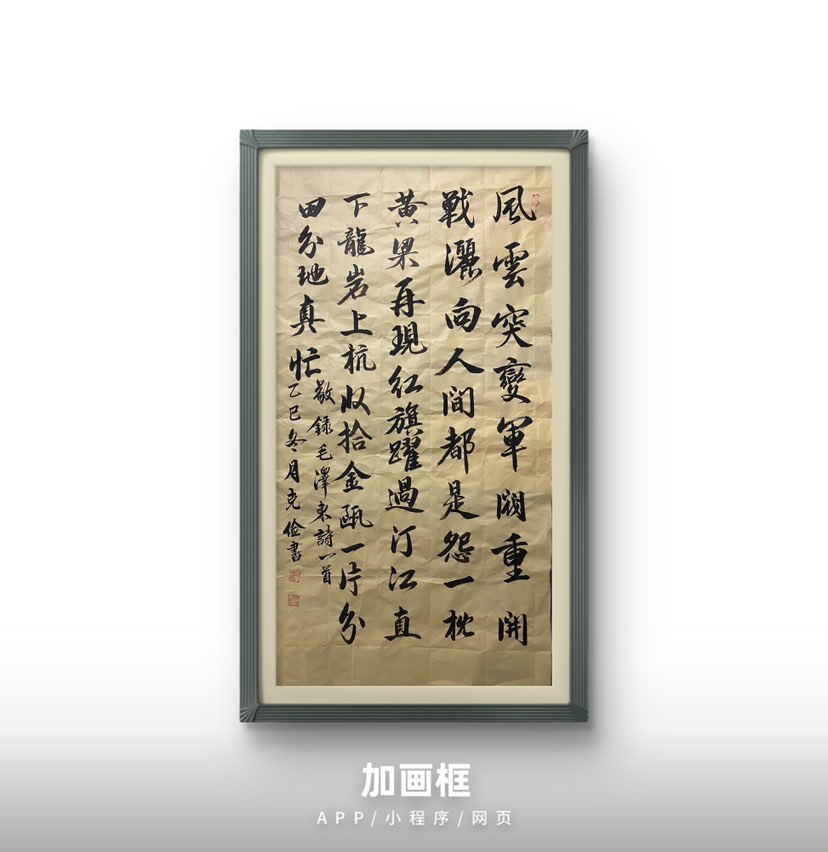 風雲突變軍閥重開
戰灑向人間都是怨一枕
黄粱再現红旗躍過汀江直
下龍岩上杭收拾金甌一片分
田分地真忙
敬録毛澤東詩一首
乙巳冬月克儉書
加画框
APP/小程序/网页